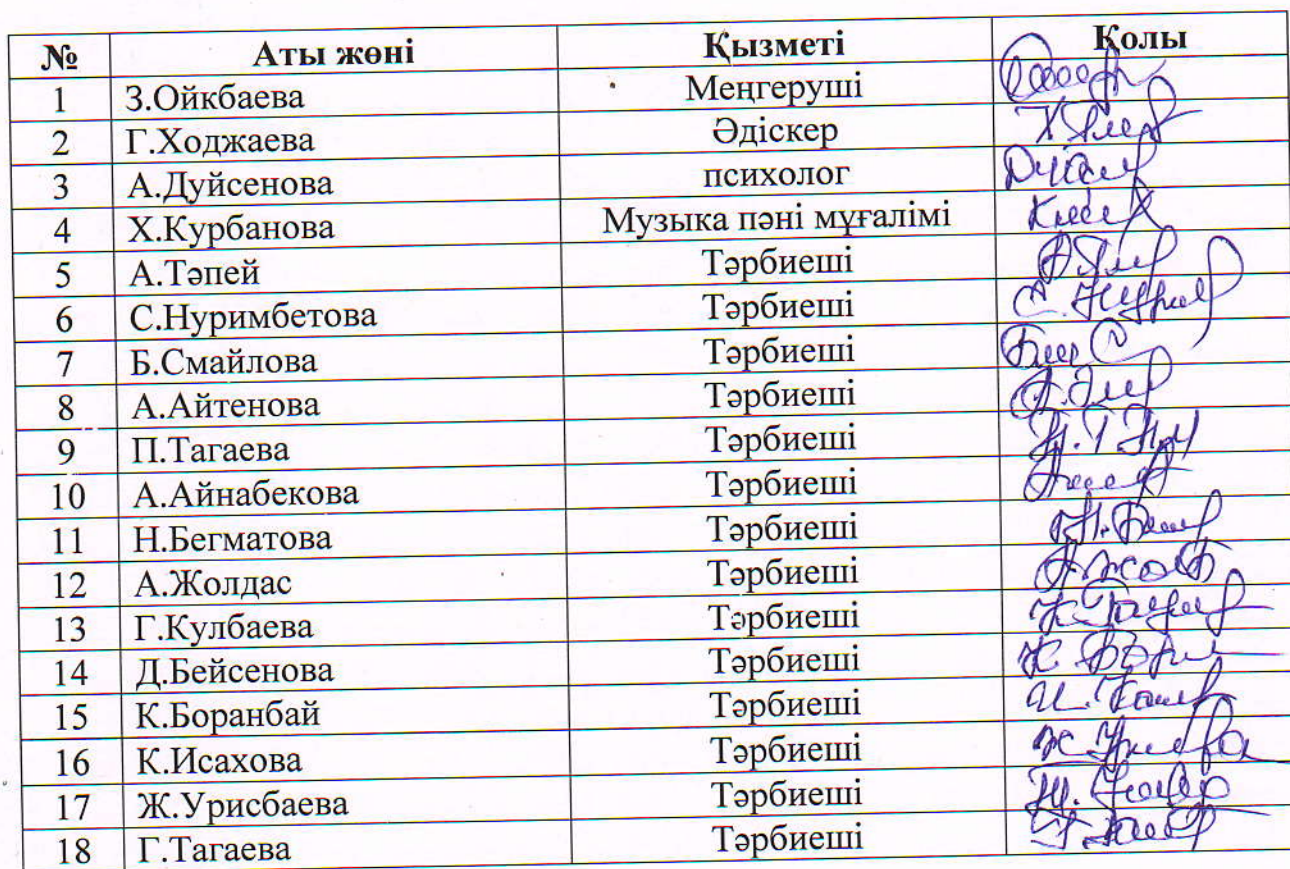 № Аты жөні Қызметі Қолы
1 З.Ойкбаева Меңгеруші
2 Г.Ходжаева Әдіскер
3 А.Дуйсенова психолог
4 Х.Курбанова Музыка пәні мұғалімі
5 А.Тәпей Тәрбиеші
6 С.Нуримбетова Тәрбиеші
7 Б.Смайлова Тәрбиеші
8 А.Айтенова Тәрбиеші
9 П.Тагаева Тәрбиеші
10 А.Айнабекова Тәрбиеші
11 Н.Бегматова Тәрбиеші
12 А.Жолдас Тәрбиеші
13 Г.Кулбаева Тәрбиеші
14 Д.Бейсенова Тәрбиеші
15 К.Боранбай Тәрбиеші
16 К.Исахова Тәрбиеші
17 Ж.Урисбаева Тәрбиеші
18 Г.Тагаева Тәрбиеші